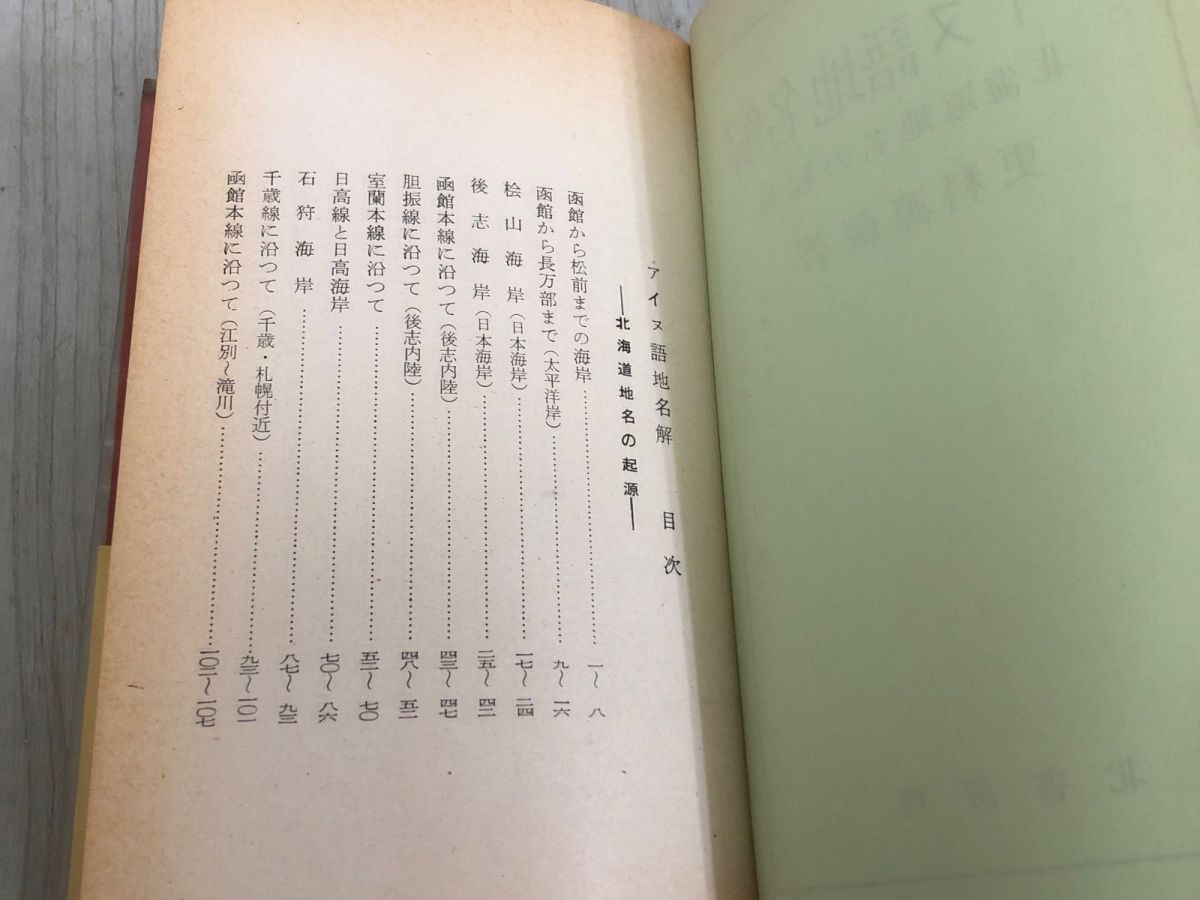 アイヌ語地名解　目次
――北海道地名の起源――
函館から松前までの海岸……………………一〜八
函館から長万部まで（太平洋岸）……………………九〜一六
桧山海岸（日本海岸）……………………一七〜二四
後志海岸（日本海岸）……………………二五〜四二
函館本線に沿つて（後志内陸）……………………四三〜四七
胆振線に沿つて（後志内陸）……………………四八〜五二
室蘭本線に沿つて……………………五二〜七〇
日高線と日高海岸……………………七〇〜八六
石狩海岸……………………八七〜九三
千歳線に沿つて（千歳・札幌付近）……………………九三〜一〇一
函館本線に沿つて（江別〜滝川）……………………一〇二〜一〇七